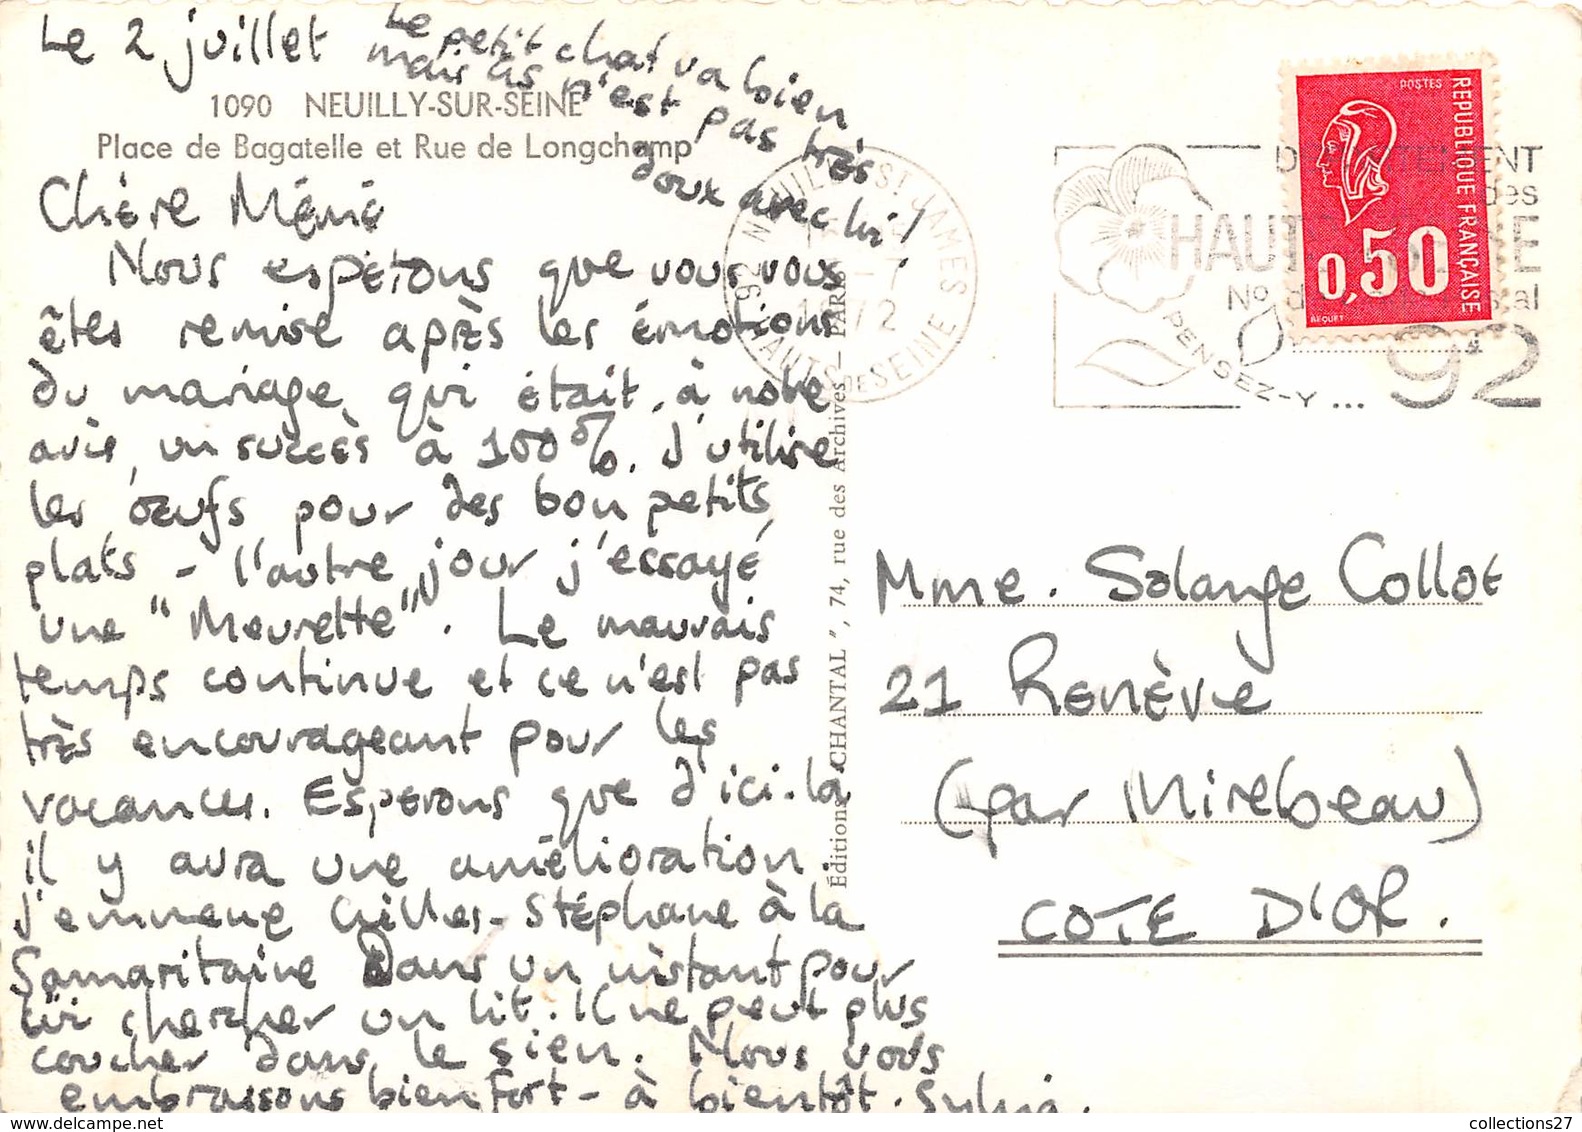 Le 2 juillet
Le petit chat va bien
mais G.S n'est pas très
doux avec lui !
1090 NEUILLY-SUR-SEINE
Place de Bagatelle et Rue de Longchamp
Chère Mémé
Nous espérons que vous vous
êtes remise après les émotions
du mariage, qui était, à notre
avis, un succès à 100%. J'utilise
les œufs pour des bon petits
plats - l'autre jour j'essayé
une "Meurette". Le mauvais
temps continue et ce n'est pas
très encourageant pour les
vacances. Esperons que d'ici-là
il y aura une amélioration.
J'emmene Gilles-Stéphane à la
Samaritaine Dans un instant pour
lui chercher un lit. Il ne peut plus
coucher dans le sien. Nous vous
embrassons bien fort - à bientôt. Sylvia.
Éditions "CHANTAL", 74, rue des Archives - PARIS
92 NEUILLY ST JAMES
HAUTS DE SEINE
-7
1972
DEPARTEMENT
des
HAUTS SEINE
No
PENSEZ-Y ...
92
POSTES
REPUBLIQUE FRANÇAISE
0,50
BEQUET
Mme. Solange Collot
21 Renève
(par Mirebeau)
COTE D'OR.
collections27